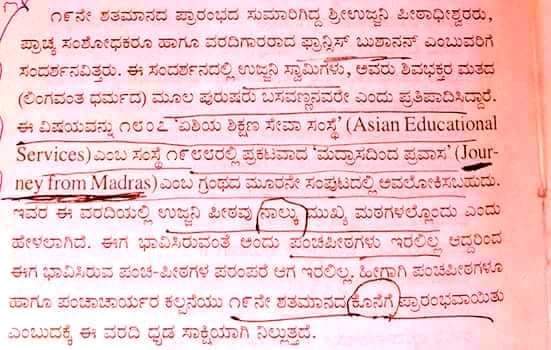 ೧೯ನೇ ಶತಮಾನದ ಪ್ರಾರಂಭದ ಸುಮಾರಿಗಿದ್ದ ಶ್ರೀಉಜ್ಜನಿ ಪೀಠಾಧೀಶ್ವರರು,
ಪ್ರಾಚ್ಯ ಸಂಶೋಧಕರೂ ಹಾಗೂ ವರದಿಗಾರರಾದ ಫ್ರಾನ್ಸಿಸ್ ಬುಶಾನನ್ ಎಂಬುವರಿಗೆ
ಸಂದರ್ಶನವಿತ್ತರು. ಈ ಸಂದರ್ಶನದಲ್ಲಿ ಉಜ್ಜನಿ ಸ್ವಾಮಿಗಳು, ಅವರು ಶಿವಭಕ್ತರ ಮತದ
(ಲಿಂಗವಂತ ಧರ್ಮದ) ಮೂಲ ಪುರುಷರು ಬಸವಣ್ಣನವರೇ ಎಂದು ಪ್ರತಿಪಾದಿಸಿದ್ದಾರೆ.
ಈ ವಿಷಯವನ್ನು ೧೮೦೭ 'ಏಶಿಯ ಶಿಕ್ಷಣ ಸೇವಾ ಸಂಸ್ಥೆ' (Asian Educational
Services) ಎಂಬ ಸಂಸ್ಥೆ ೧೯೮೮ರಲ್ಲಿ ಪ್ರಕಟವಾದ 'ಮದ್ರಾಸದಿಂದ ಪ್ರವಾಸ' (Jour-
ney from Madras) ಎಂಬ ಗ್ರಂಥದ ಮೂರನೇ ಸಂಪುಟದಲ್ಲಿ ಅವಲೋಕಿಸಬಹುದು.
ಇವರ ಈ ವರದಿಯಲ್ಲಿ ಉಜ್ಜನಿ ಪೀಠವು ನಾಲ್ಕು ಮುಖ್ಯ ಮಠಗಳಲ್ಲೊಂದು ಎಂದು
ಹೇಳಲಾಗಿದೆ. ಈಗ ಭಾವಿಸಿರುವಂತೆ ಅಂದು ಪಂಚಪೀಠಗಳು ಇರಲಿಲ್ಲ ಆದ್ದರಿಂದ
ಈಗ ಭಾವಿಸಿರುವ ಪಂಚ-ಪೀಠಗಳ ಪರಂಪರೆ ಆಗ ಇರಲಿಲ್ಲ. ಹೀಗಾಗಿ ಪಂಚಪೀಠಗಳೂ
ಹಾಗೂ ಪಂಚಾಚಾರ್ಯರ ಕಲ್ಪನೆಯು ೧೯ನೇ ಶತಮಾನದ ಕೊನೆಗೆ ಪ್ರಾರಂಭವಾಯಿತು
ಎಂಬುದಕ್ಕೆ ಈ ವರದಿ ಧೃಡ ಸಾಕ್ಷಿಯಾಗಿ ನಿಲ್ಲುತ್ತದೆ.